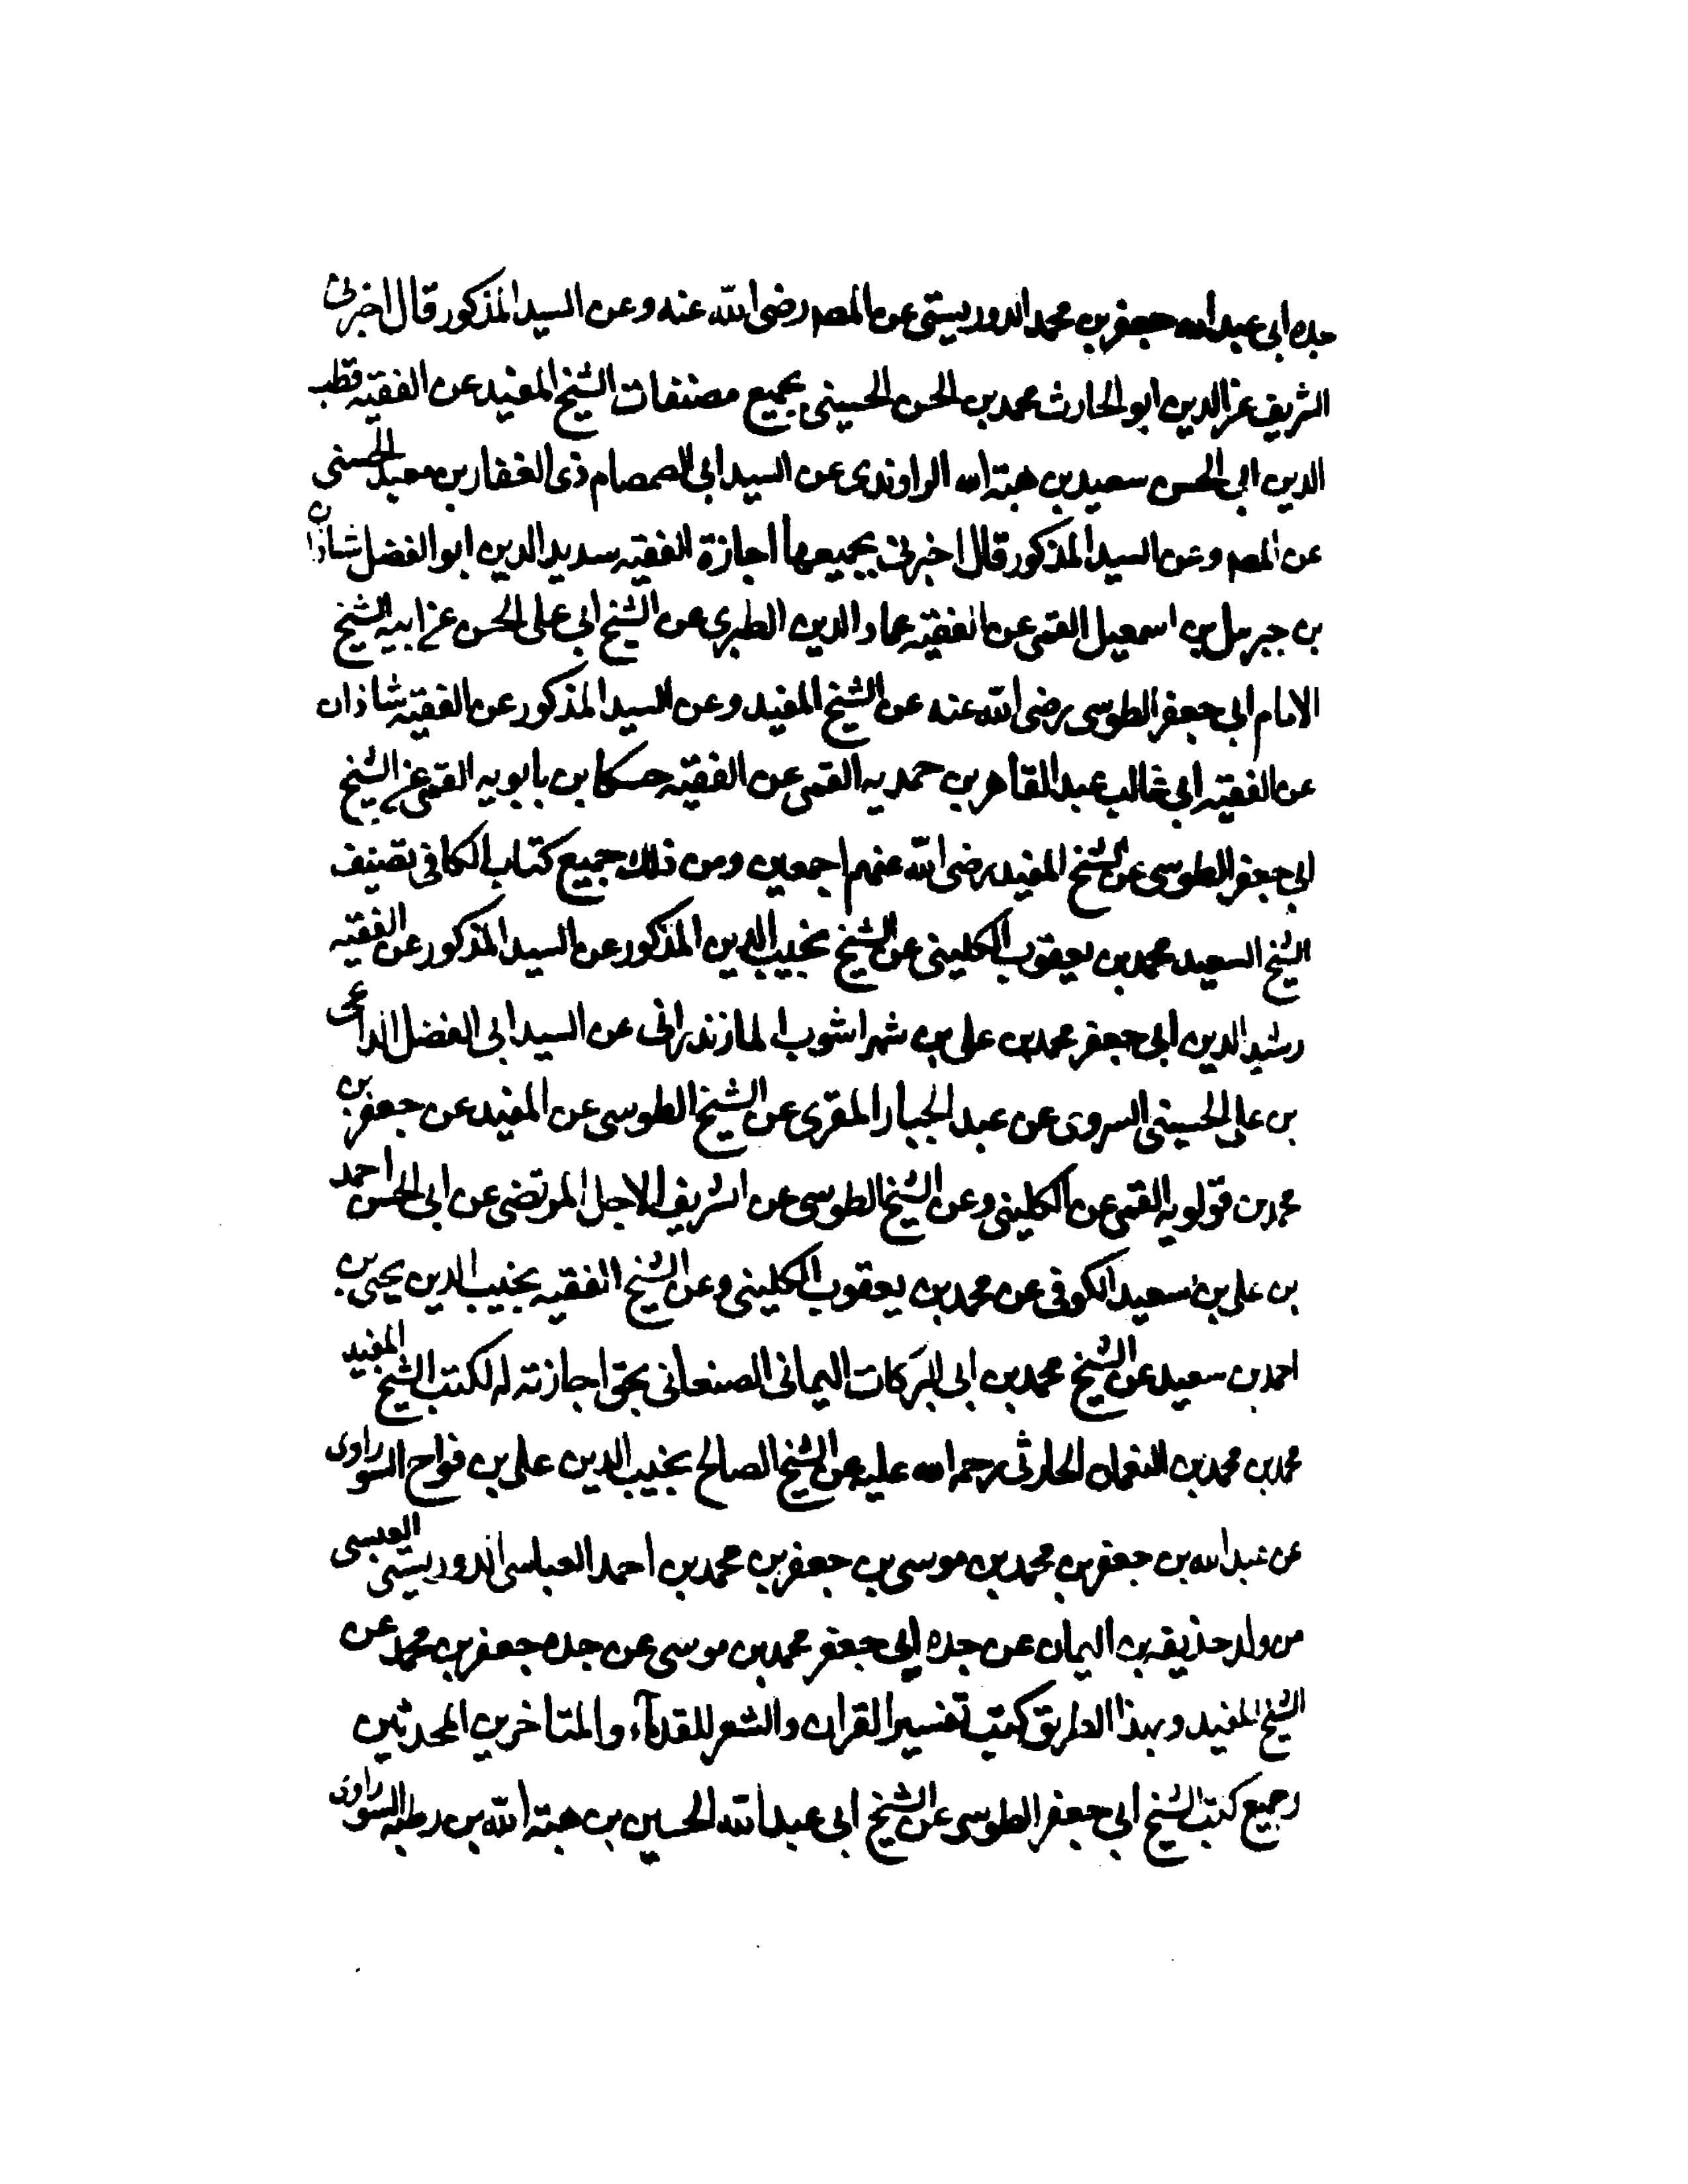 جده ابى عبد الله جعفر بن محمد الدوريستى عن المصم رضى الله عنه وعن السيد المذكور قال اخبرنى
الشريف عز الدين ابو الحارث محمد بن الحسن الحسينى بجميع مصنفات الشيخ المفيد عن الفقيه قطب
الدين ابى الحسن سعيد بن هبة الله الراوندى عن السيد ابى الصمصام ذى الفقار بن معبد الحسنى
عن المصم وعن السيد المذكور قال اخبرنى بجميعها اجازة الفقيه سديد الدين ابو الفضل شاذان
بن جبرئيل بن اسمعيل القمى عن الفقيه عماد الدين الطبرى عن الشيخ ابى على الحسن عن ابيه الشيخ
الامام ابى جعفر الطوسى رضى الله عنه عن الشيخ المفيد وعن السيد المذكور عن الفقيه شاذان
عن الفقيه ابى غالب عبد القاهر بن حمديه القمى عن الفقيه حسكا بن بابويه القمى عن الشيخ
ابى جعفر الطوسى عن الشيخ المفيد رضى الله عنهم اجمعين ومن ذلك جميع كتاب الكافى تصنيف
الشيخ السعيد محمد بن يعقوب الكلينى عن الشيخ نجيب الدين المذكور عن السيد المذكور عن الفقيه
رشيد الدين ابى جعفر محمد بن على بن شهراشوب المازندرانى عن السيد ابى الفضل الداعى
بن على الحسينى السروى عن عبد الجبار المقرى عن الشيخ الطوسى عن المفيد عن جعفر بن
محمد بن قولويه القمى عن الكلينى وعن الشيخ الطوسى عن الشريف الاجل المرتضى عن ابى الحسن احمد
بن على بن سعيد الكوفى عن محمد بن يعقوب الكلينى وعن الشيخ الفقيه نجيب الدين يحيى بن
احمد بن سعيد عن الشيخ محمد بن ابى البركات اليمانى الصنعانى بحق اجازته له لكتب الشيخ المفيد
محمد بن محمد بن النعمان الحارثى رحمه الله عليه عن الشيخ الصالح نجيب الدين على بن فراح السوراوى
عن عبد الله بن جعفر بن محمد بن موسى بن جعفر بن محمد بن احمد العباسى الدوريستى العبسى
من ولد حذيفه بن اليمان عن جده ابى جعفر محمد بن موسى عن جده جعفر بن محمد عن
الشيخ المفيد وبهذا الطريق كتب تفسير القران والشعر للقدمآء والمتاخرين المحدثين
وجميع كتب الشيخ ابى جعفر الطوسى عن الشيخ ابى عبد الله الحسين بن هبة الله بن رطبه السوراوى